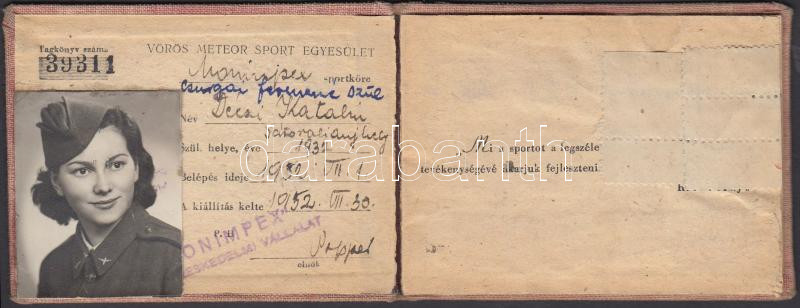 Tagkönyv száma
39311
VÖRÖS METEOR SPORT EGYESÜLET
Monimpex sportköre
Csurgai Ferencné szül
Név Decsi Katalin
Sátoraljaujhely
Szül. helye, éve 1931
Belépés ideje 1952 VII. 1
A kiállítás kelte 1952. VII. 30.
P. H.
ONIMPEX
ESKEDELMI VÁLLALAT
Poppel
elnök
„Mi a sportot a legszéle
tevékenységévé akarjuk fejleszteni
darabanth